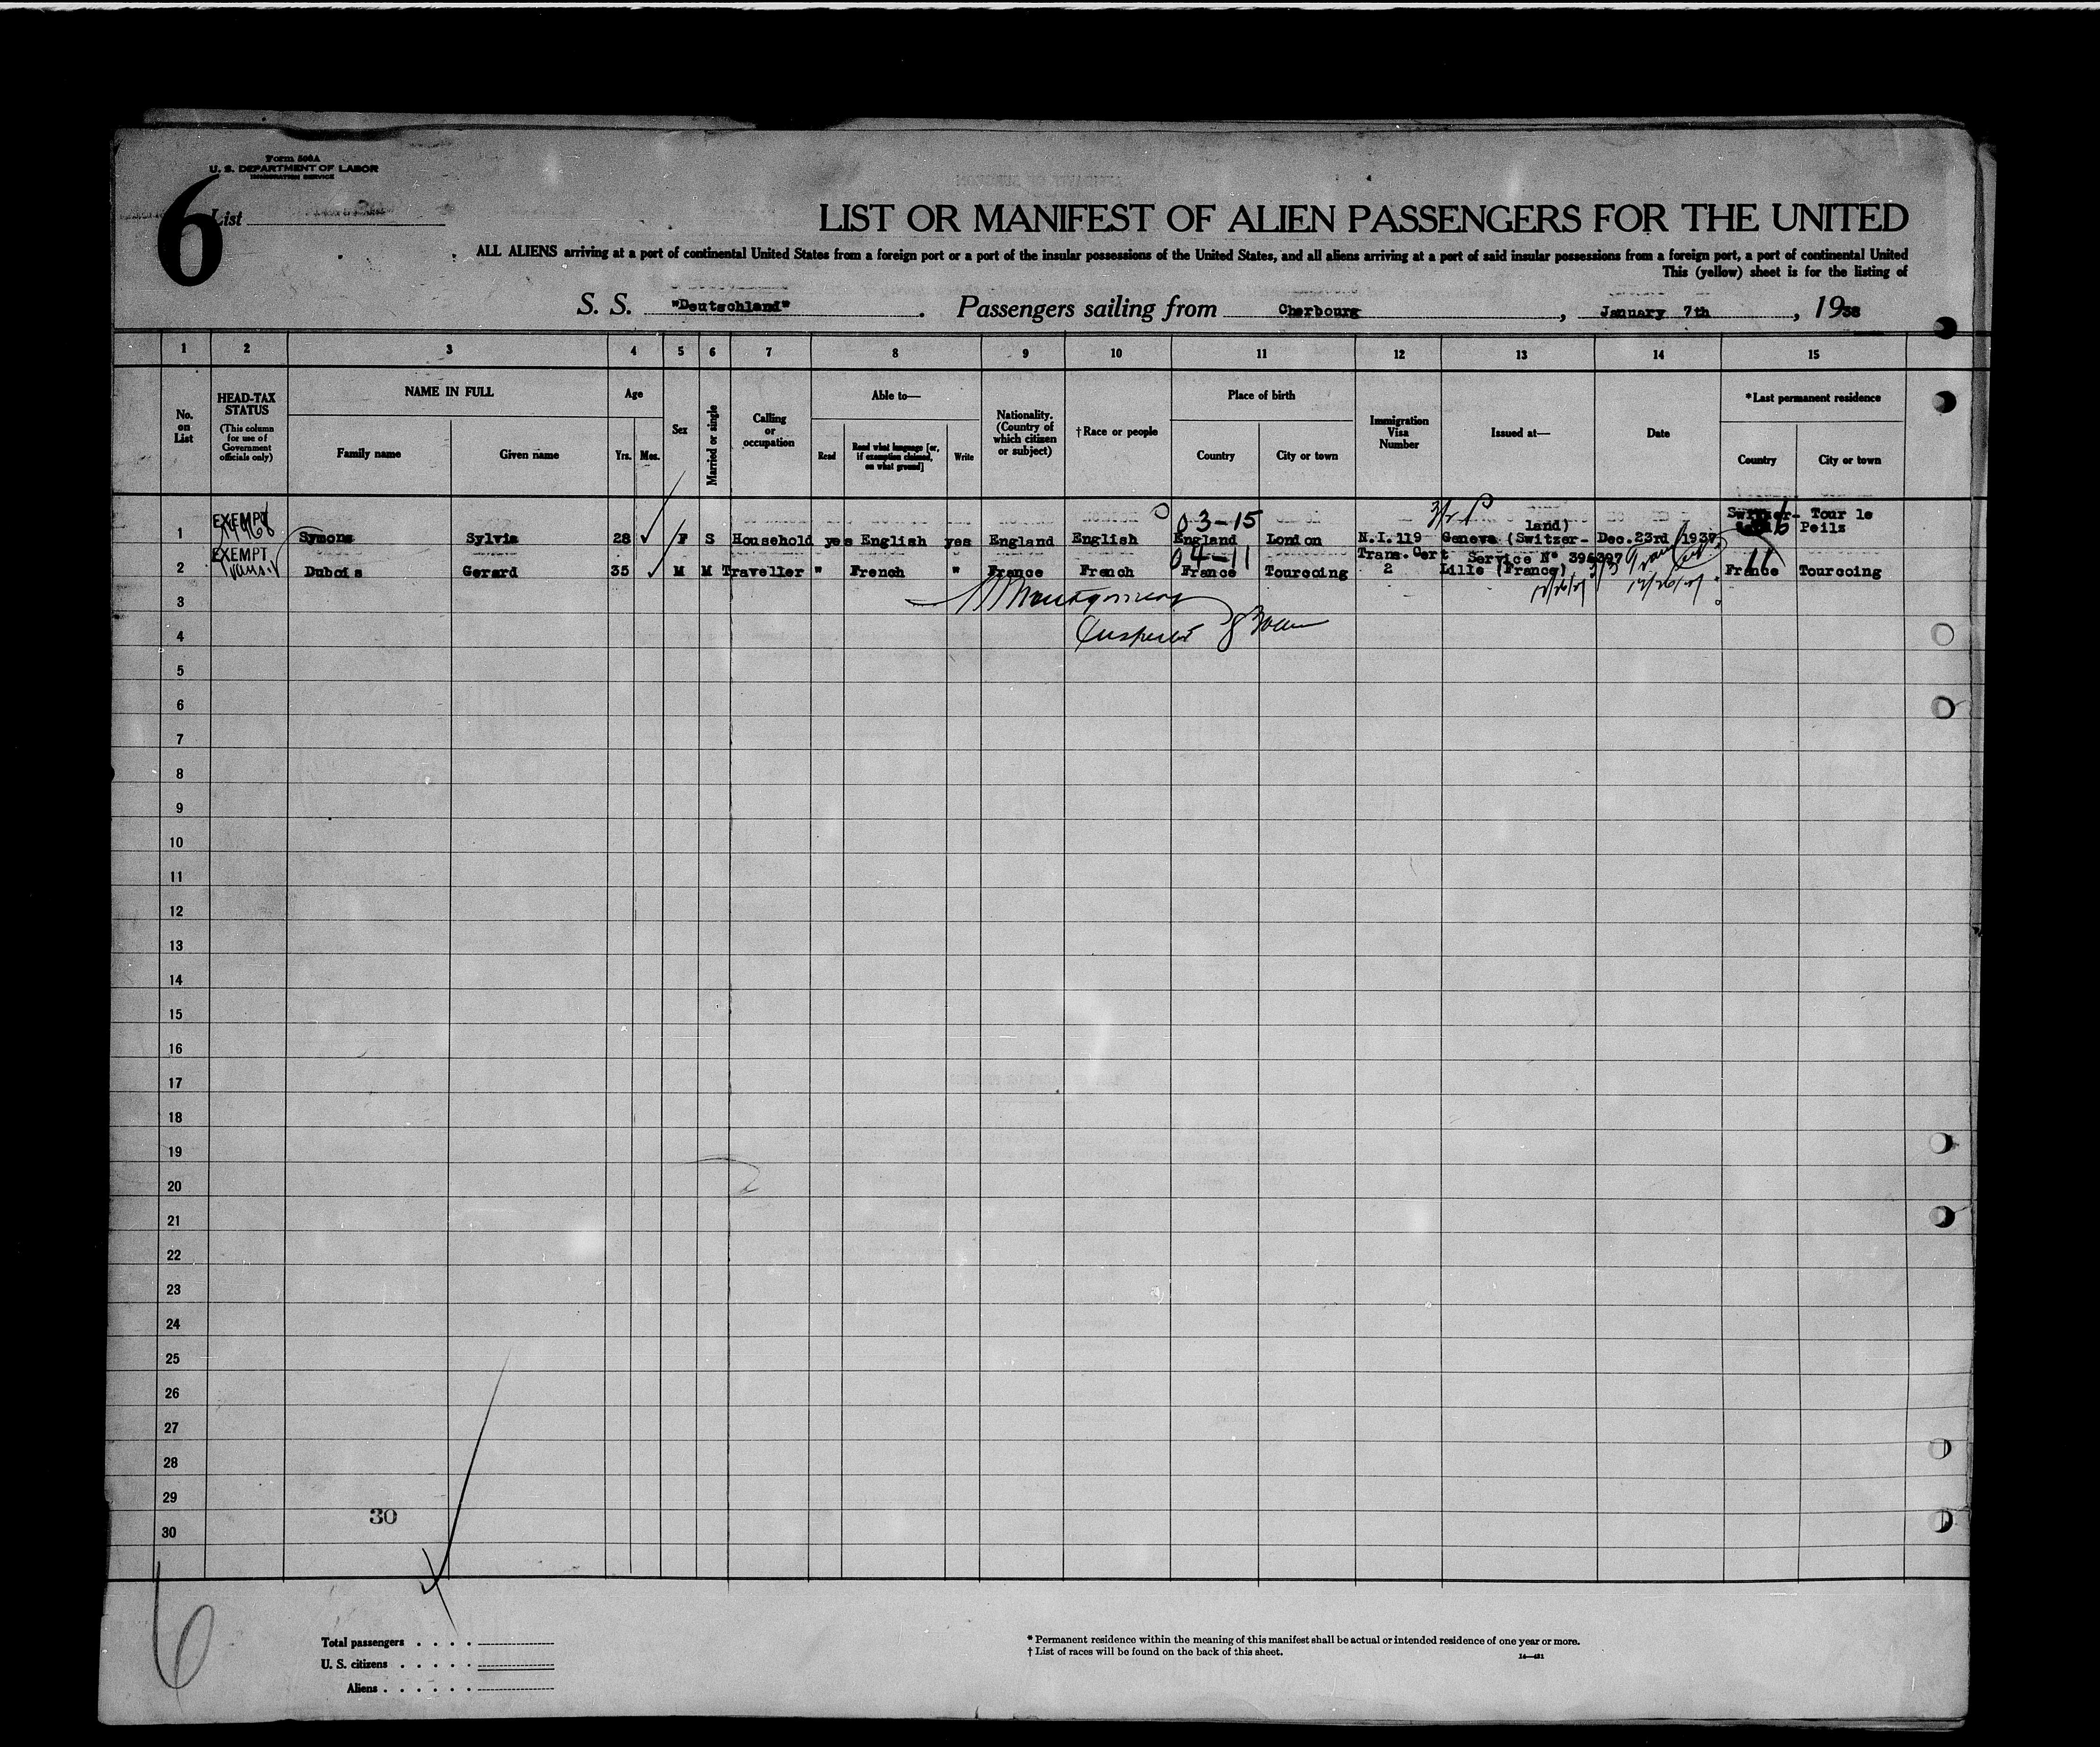 Form 500A
U. S. DEPARTMENT OF LABOR
IMMIGRATION SERVICE
6
List
LIST OR MANIFEST OF ALIEN PASSENGERS FOR THE UNITED
ALL ALIENS arriving at a port of continental United States from a foreign port or a port of the insular possessions of the United States, and all aliens arriving at a port of said insular possessions from a foreign port, a port of continental United
This (yellow) sheet is for the listing of
S. S. "Deutschland". Passengers sailing from Cherbourg, January 7th, 1938
1 2 3 4 5 6 7 8 9 10 11 12 13 14 15
No. on List
HEAD-TAX STATUS (This column for use of Government officials only)
NAME IN FULL
Family name
Given name
Age
Yrs. Mos.
Sex
Married or single
Calling or occupation
Able to—
Read
Read what language [or, if exemption claimed, on what ground]
Write
Nationality. (Country of which citizen or subject)
†Race or people
Place of birth
Country
City or town
Immigration Visa Number
Issued at—
Date
*Last permanent residence
Country
City or town
EXEMPT 03-15 land) Switzer- Tour le
1 Symons Sylvia 28 ✓ F S Household yes English yes England English England London N.I. 119 Geneva (Switzer- Dec. 23rd 1937 Peilz
EXEMPT 04-11 Trans. Cert Service No 396397
2 Dubois Gerard 35 ✓ M M Traveller " French " France French France Tourcoing 2 Lille (France) France Tourcoing
11
3 Montgomery
4
5
6
7
8
9
10
11
12
13
14
15
16
17
18
19
20
21
22
23
24
25
26
27
28
29
30
30
6
Total passengers
U. S. citizens
Aliens
* Permanent residence within the meaning of this manifest shall be actual or intended residence of one year or more.
† List of races will be found on the back of this sheet.
14—431